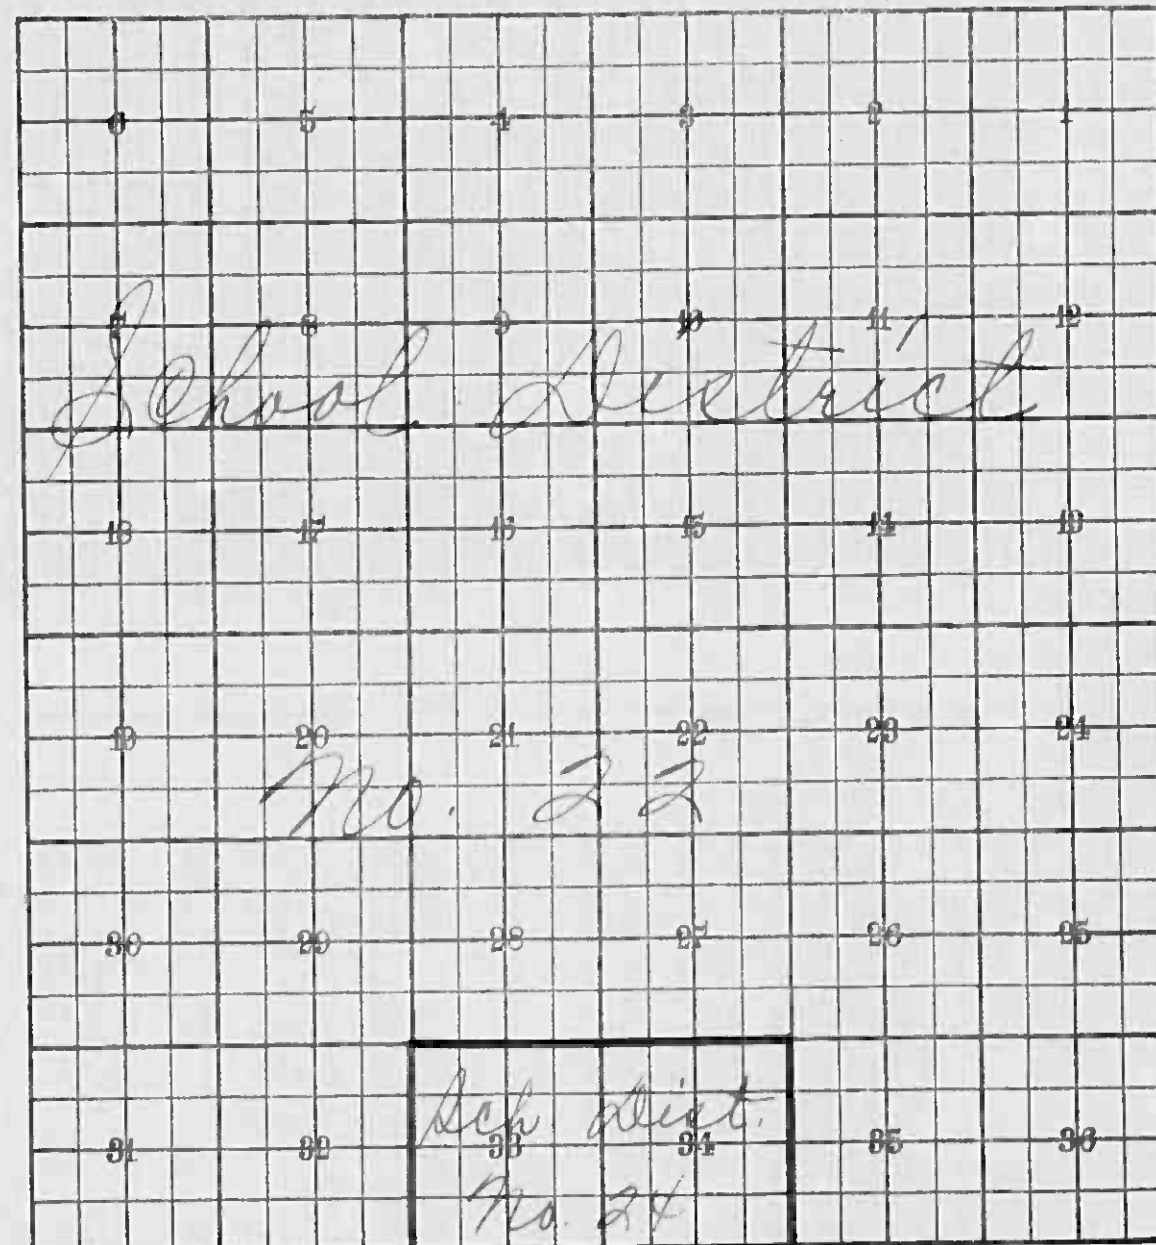 6 5 4 3 2 1
7 8 9 10 11 12
School District
18 17 16 15 14 13
19 20 21 22 23 24
No. 22
30 29 28 27 26 25
Sch. Dist.
31 32 33 34 35 36
No. 24